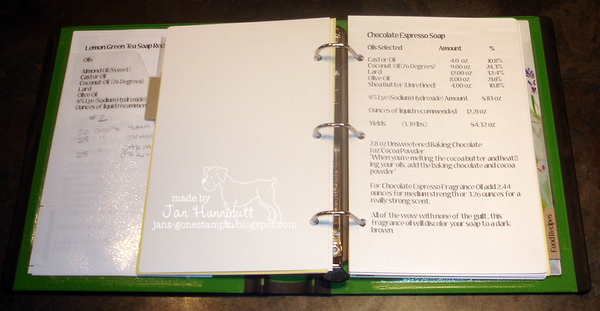 Lemon Green Tea Soap Rec
Oils
Almond Oil (Sweet)
Castor Oil
Coconut Oil (76 Degrees)
Lard
Olive Oil
5% Lye (Sodium Hydroxide)
Ounces of liquid recommended
#2
25
Chocolate Espresso Soap
Oils Selected Amount %
Castor Oil 4.0 oz 10.8%
Coconut Oil (76 Degrees) 9.00 oz 24.3%
Lard 12.00 oz 32.4%
Olive Oil 8.00 oz 21.6%
Shea Butter (Unrefined) 4.00 oz 10.8%
5% Lye (Sodium Hydroxide) Amount 5.13 oz
Ounces of liquid recommended 12.21 oz
Yields 54.32 oz
2.8 oz Unsweetened Baking Chocolate
1 oz Cocoa Powder
"When you're melting the cocoa butter and heat
ing your oils, add the baking chocolate and cocoa
powder"
For Chocolate Espresso Fragrance Oil add 2.44
ounces for medium strength or 3.26 ounces for a
really strong scent.
All of the wow with none of the guilt, this
fragrance oil will discolor your soap to a dark
brown.
Food Recipes
made by
Jan Hunnicutt
jans-gonestampin.blogspot.com